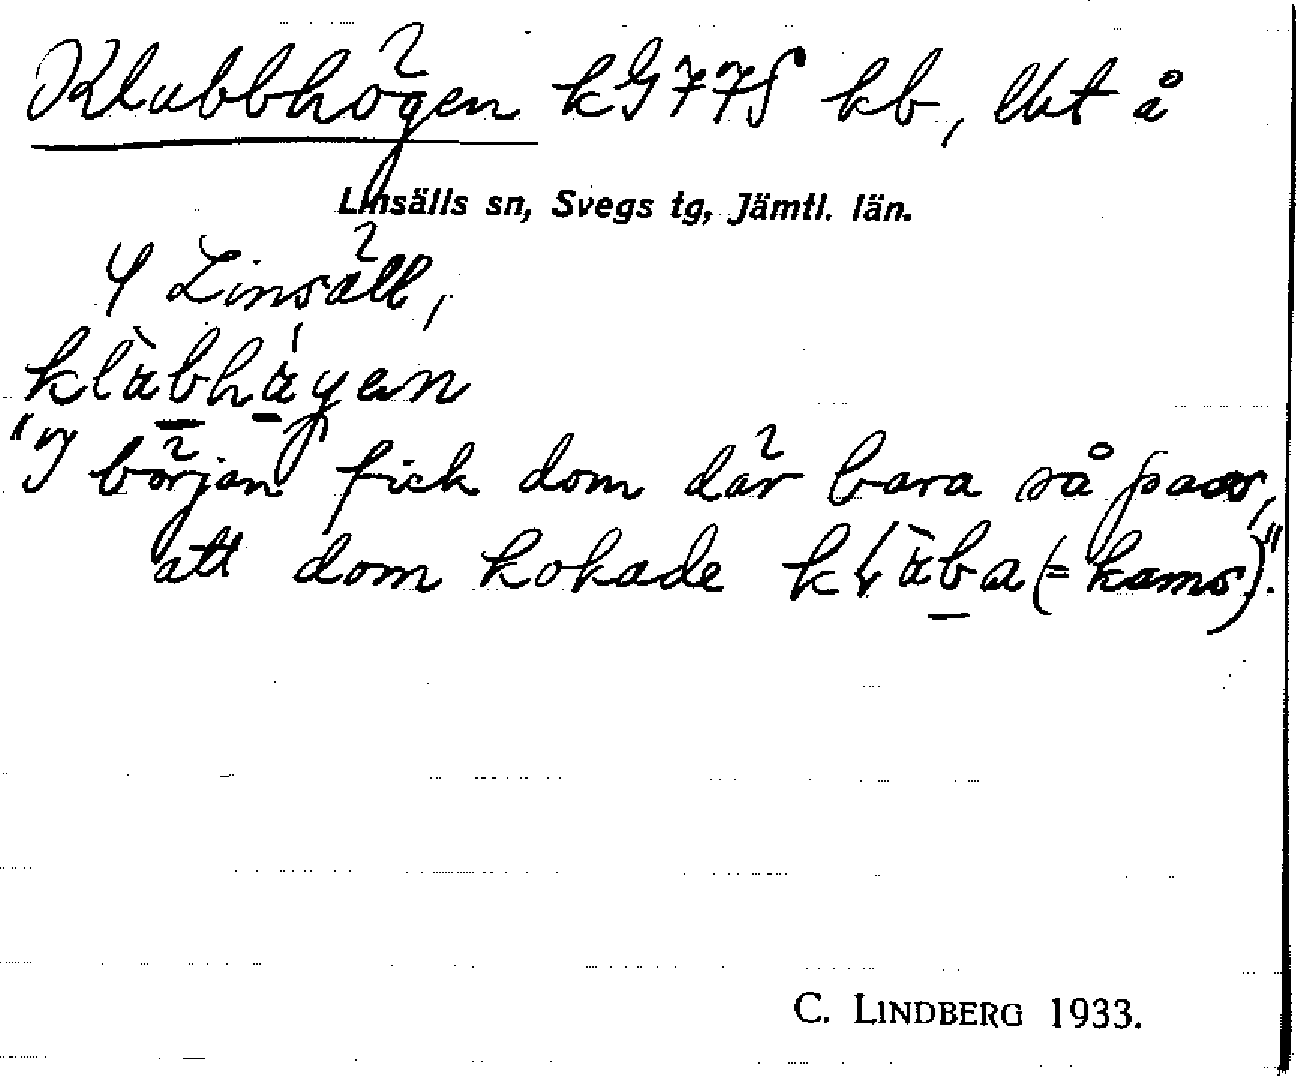 Klubbhögen kG77S kb, Ubt å
Linsälls sn, Svegs tg, Jämtl. län.
4 Linsäll,
klàbháyen
"I början fick dom där bara så pass,
att dom kokade klàba (= kams)".
C. LINDBERG 1933.